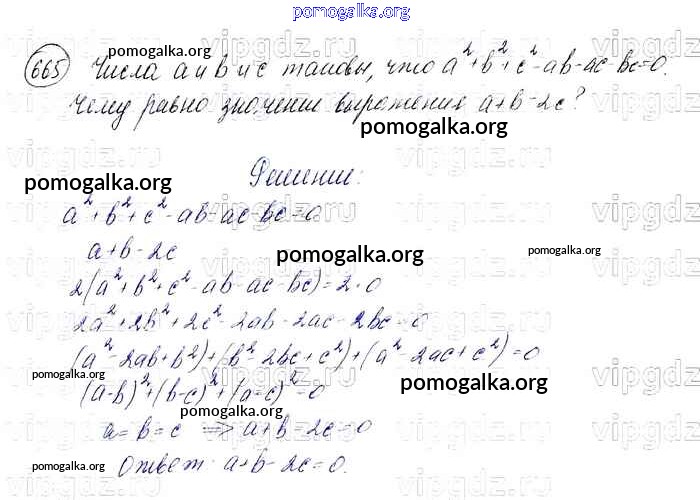 pomogalka.org
665 Числа a и b и c таковы, что a²+b²+c²-ab-ac-bc=0.
pomogalka.org
Чему равно значении выражения a+b-2c?
pomogalka.org
Решении:
pomogalka.org
a²+b²+c²-ab-ac-bc=0
a+b-2c
pomogalka.org
pomogalka.org
2(a²+b²+c²-ab-ac-bc)=2·0
2a²+2b²+2c²-2ab-2ac-2bc=0
(a²-2ab+b²)+(b²-2bc+c²)+(a²-2ac+c²)=0
pomogalka.org
pomogalka.org
(a-b)²+(b-c)²+(a-c)²=0
pomogalka.org
a=b=c => a+b-2c=0
pomogalka.org
Ответ: a+b-2c=0.
vipgdz.ru